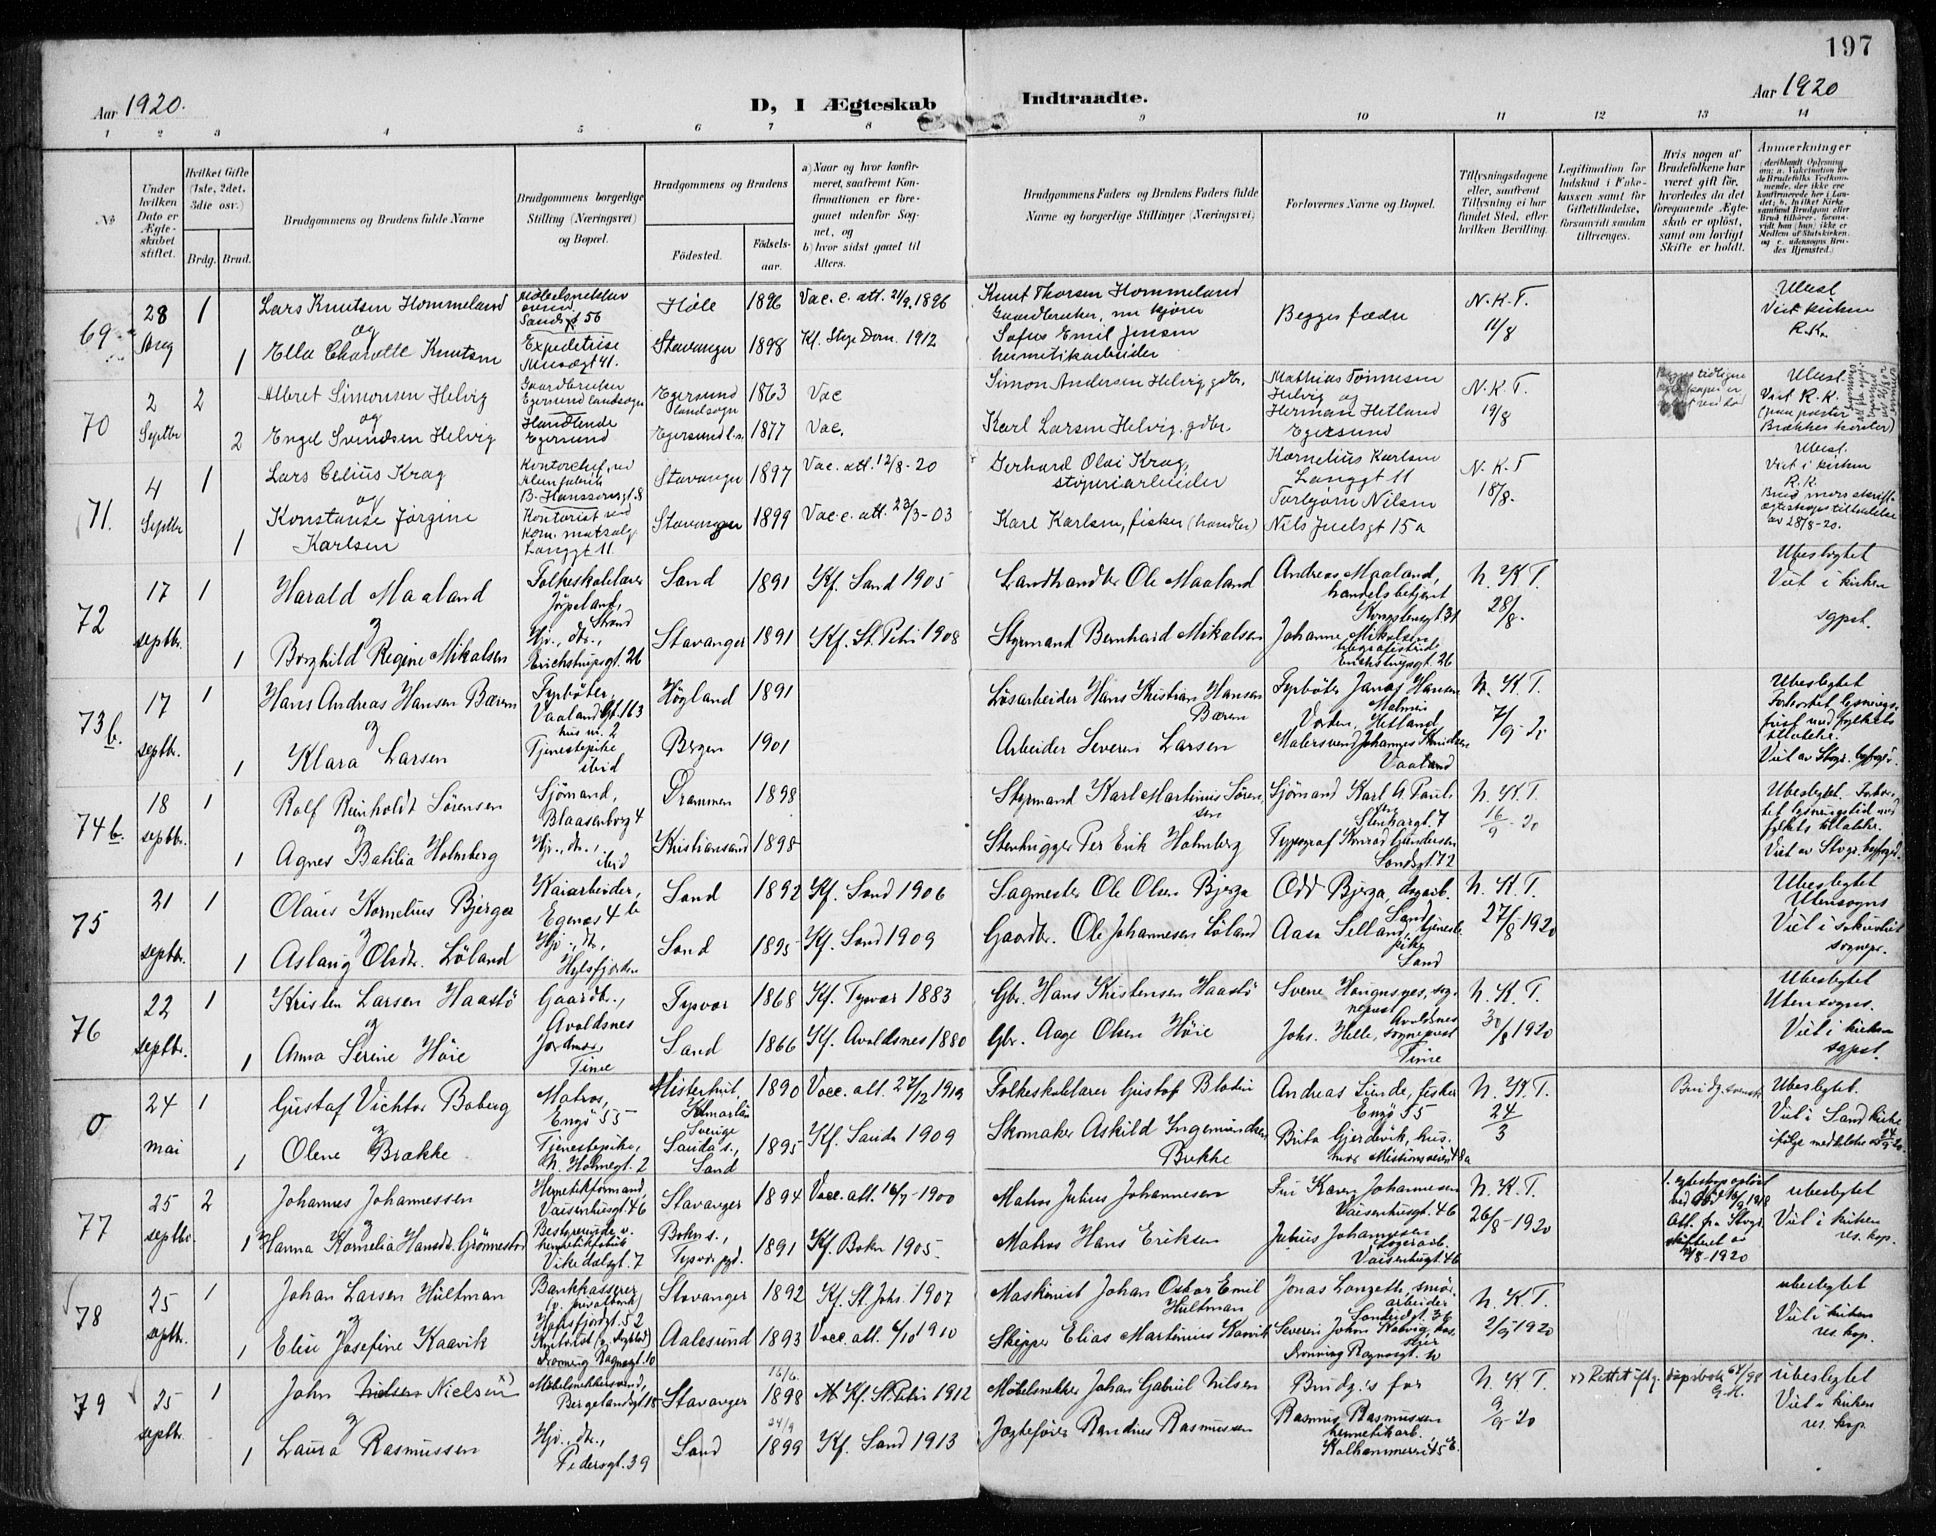 197
Aar 1920.
D, I Ægteskab Indtraadte.
Aar 1920
1 2 3 4 5 6 7 8 9 10 11 12 13 14
No
Under hvilken Dato er Ægteskabet stiftet.
Hvilket Gifte (1ste, 2det, 3die osv.)
Brdg. Brud.
Brudgommens og Brudens fulde Navne
Brudgommens borgerlige Stilling (Næringsvei) og Bopæl.
Brudgommens og Brudens
Fødested.
Fødselsaar.
a) Naar og hvor konfirmeret, saafremt Konfirmationen er foregaaet udenfor Sognet, og
b) hvor sidst gaaet til Alters.
Brudgommens Faders og Brudens Faders fulde Navne og borgerlige Stillinger (Næringsvei)
Forlovernes Navne og Bopæl.
Tillysningsdagene eller, saafremt Tillysning ei har fundet Sted, efter hvilken Bevilling.
Legitimation for Indskud i Enkekassen samt for Giftetilladelse, forsaavidt saadan tiltrænges.
Hvis nogen af Brudefolkene har været gift før, hvorledes da det foregaaende Ægteskab er opløst, samt om lovligt Skifte er holdt.
Anmerkninger
69 28 Aug 1 Lars Knutsen Hommeland Sandsgt 56 Høle 1896 Vac. e. att. 21/9 1896 Knut Thorsen Hommeland Gaardbruker, nu kjører Begges fædre N.K.T. 11/8 Ubesl. Viet i kirken R.K.
og
1 Ella Charlotte Knutsen Expeditrise Stavanger 1898 Kf. Stvgr Dom. 1912 Sofus Emil Jensen hermetikarbeider
70 2 Septbr 2 Albret Simonsen Helvig Gaardbruker Egersund landsogn Egersund landsogn 1863 Vac Simon Andersen Helvig, gdbr. Mathias Tønnesen Helvig og N.K.T. 19/8 Ubesl. Viet R.K.
og
2 Engel Svendsen Helvig Handlende Egersund Egersund l.s. 1877 Vac. Karl Larsen Helvig, gdbr. Herman Hetland Egersund
71. 4 Septbr 1 Lars Celius Krag Kontorchef ved B. Hanssonsgt. 8 Stavanger 1897 Vac. att. 12/8-20 Gerhard Olai Krag, støperiarbeider Kornelius Karlsen Langgt 11 N.K.T 18/8. Ubesl. Viet i kirken R.K.
og
1 Konstanse Jørgine Karlsen Kontorist ved Langgt 11. Stavanger 1899 Vac. e. att. 23/3-03 Karl Karlsen, fisker (handler) Torbjørn Nilsen Nils Juelsgt 15a
72 17 septbr. 1 Harald Maaland Folkeskolelærer Jørpeland, Strand Sand 1891 Kf. Sand 1905 Landhandler Ole Maaland Andreas Maaland, handelsbetjent Kongstensgt. 31 N.K.T. 28/8. Ubeslegtet Viet i kirken sgpst.
og
1 Borghild Regine Mikalsen Hjv., dtr., Erichstrupsgt. 26 Stavanger 1891 Kf. St. Petri 1908 Styrmand Bernhard Mikalsen Johanne Mikalsen telegrafistinde Erichstrupsgt. 26
73b. 17 septbr. 1 Hans Andreas Hansen Bæren Fyrbøter, Vaalandsgt. 163 hus nr. 2 Høgland 1891 Løsarbeider Hans Kristian Hansen Bæren Fyrbøter Jonas Hansen N.K.T. 7/9-20 Ubeslegtet Forkortet lysningsfrist med fylkets tillatelse. Viet av Stvgr. byfoged.
og
1 Klara Larsen Tjenestepike ibid Bergen 1901 Arbeider Severin Larsen Malersvend Johannes Knudsen Vaaland
74b. 18 septbr. 1 Rolf Reinholdt Sørensen Sjømand, Blaasenborg 4 Drammen 1898 Styrmand Karl Martinius Sørensen Sjømand Karl A Paulsen Stenkargt. 7 N.K.T. 16/9-20 Ubeslegtet. Forkortet lysningstid med fylkets tillatelse. Viet av Stvgr. byfoged.
og
1 Agnes Batilia Holmberg Hjv., dtr., ibid Kristiansand 1898 Stenhugger Per Erik Holmberg Typograf Konrad Gundersen Sandsgt. 72
75 21 septbr. 1 Olaus Kornelius Bjerga Kaiarbeider, Egenes 4b Sand 1892 Kf. Sand 1906 Sagmester Ole Olsen Bjerga Odd Bjerga, dagarb. Sand N.K.T. 27/8 1920 Ubeslegtet Utensogns
og
1 Aslaug Olsdtr. Løland Hjv., dtr., Hylsfjorden Sand 1895 Kf. Sand 1909 Gaardbr. Ole Johannesen Løland Aasa Selland, tjenestepike Sand
76 22 septbr. 1 Kristen Larsen Haastø Gaardb., Avaldsnes Tysvær 1868 Kf. Tysvær 1883 Gbr. Hans Kristensen Haastø Svene Haugnæs, sogneprest Avaldsnes N.K.T. 30/8 1920 Ubeslegtet Utensogns. Viet i kirken sgpst.
og
1 Anna Serine Høie Jordmor, Time Sand 1866 Kf. Avaldsnes 1880 Gbr. Aage Olsen Høie Johs. Helle, sogneprest Time
0 24 mai 1 Gustaf Vichtor Boberg Matros, Engø 55 Misterhult, Kalmarlän Sverige 1890 Vacc. att. 27/12 1919 Folkeskolelærer Gustaf Andreas Lunde, fisker Engø 55 N.K.T. 24/3 Brudg. svensk Ubeslegtet. Viet i Sand kirke ifølge meddelelse 24/9-20
og
1 Olene Brække Tjenestepike, N. Holmegt. 2 Sauda s., Sand 1895 Kf. Sauda 1909 Skomaker Askild Ingemundsen Brekke Brita Gjerdevik, husmor Misjonsveien 8a
77 25 septbr. 2 Johannes Johannessen Hermetikformand, Vaisenhusgt. 46 Stavanger 1894 Vacc. att. 16/7 1900 Matros Julius Johannesen Siri Karen Johannesen Vaisenhusgt. 46 N.K.T. 26/8-1920 1. egteskap opløst ved død 16/9 1918 Att. fra Stvgr. skifteret av 12/8-1920 ubeslegtet Viet i kirken res. kap.
og
1 Hanna Kornelia Hansdr. Grønnestad Bestyrerinde v. hermetikfabrik Vikedalsgt. 7 Bokn s., Tysvær pgd. 1891 Kf. Bokn 1905. Matros Hans Eriksen Julius Johannesen lagerarb. Vaisenhusgt. 46
78 25 septbr. 1 Johan Larsen Hultman Bankkasserer (v. privatbank) Hafrsfjordgt. 52 Stavanger 1892 Kf. St. Johs. 1907 Maskinist Johan Oskar Emil Hultman Jonas Langeth, smørarbeider Sandeidgt. 39 N.K.T. 2/9 1920 ubeslegtet Viet i kirken res. kap.
og
1 Elise Josefine Kaavik Dronning Ragnasgt. 10 Aalesund 1893 Vacc. att. 6/10 1910 Skipper Elias Martinius Kaavik Severin Johan Natvig, Dronning Ragnasgt. 10
79 25 septbr. 1 John Nielsen Nielsen x) Møbelsnekkersvend, Bergelandsgt. 18 Stavanger 16/6. 1898 Kf. St. Petri 1912 Møbelsnekker Johan Gabriel Nilsen Brudg.s far N.K.T. 9/9-20 x) Rettet iflg. dåpsbok 64/98 G.H. ubeslegtet Viet i kirken res. kap.
og
1 Laura Rasmussen Hjv., dtr., Pedersgt. 39 Sand 24/9 1899 Kf. Sand 1913 Jagtefører Randius Rasmussen Rasmus Rasmussen hermetikarb. Kalhammeren 45 E.